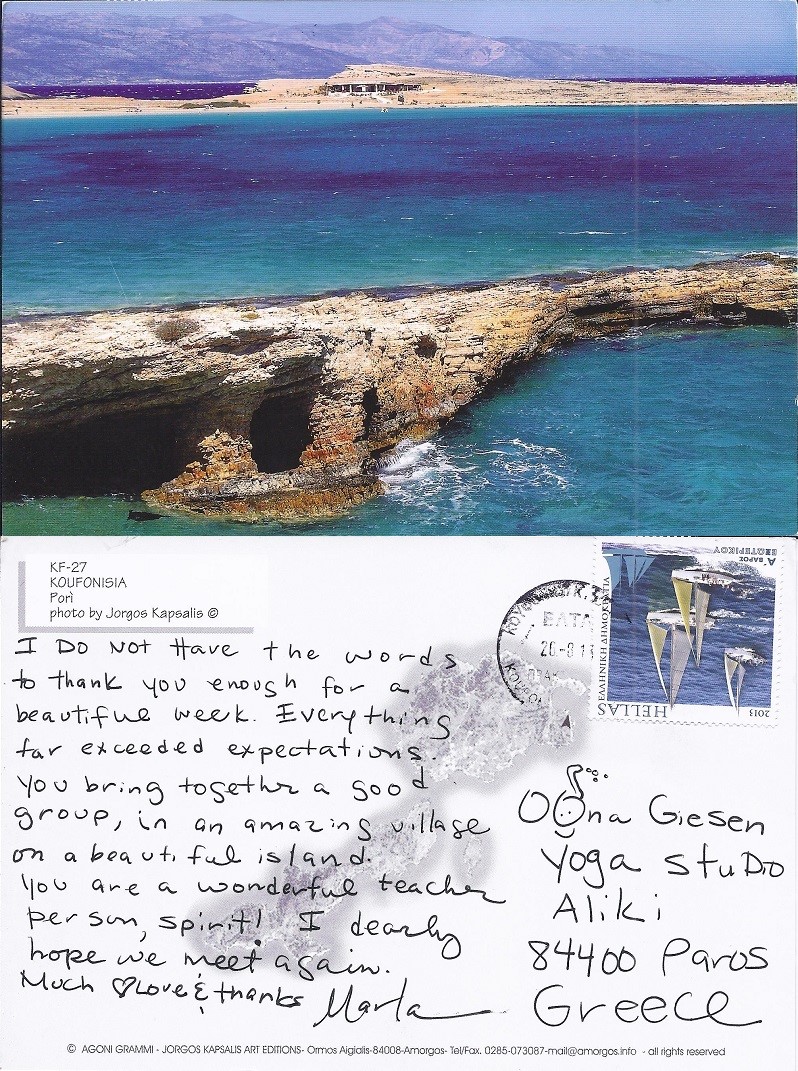 KF-27
KOUFONISIA
Porì
photo by Jorgos Kapsalis ©
I DO NOT Have the words
to thank you enough for a
beautiful week. Everything
far exceeded expectations.
You bring together a good
group, in an amazing village
on a beautiful island.
You are a wonderful teacher
person, spirit! I dearly
hope we meet again.
Much ♡Love & thanks Marla
Α΄ ΒΑΡΟΣ
ΕΞΩΤΕΡΙΚΟΥ
ΕΛΛΗΝΙΚΗ ΔΗΜΟΚΡΑΤΙΑ
HELLAS
2013
OOna Giesen
Yoga StuDio
Aliki
84400 Paros
Greece
© AGONI GRAMMI - JORGOS KAPSALIS ART EDITIONS- Ormos Aigialis-84008-Amorgos- Tel/Fax. 0285-073087-mail@amorgos.info - all rights reserved